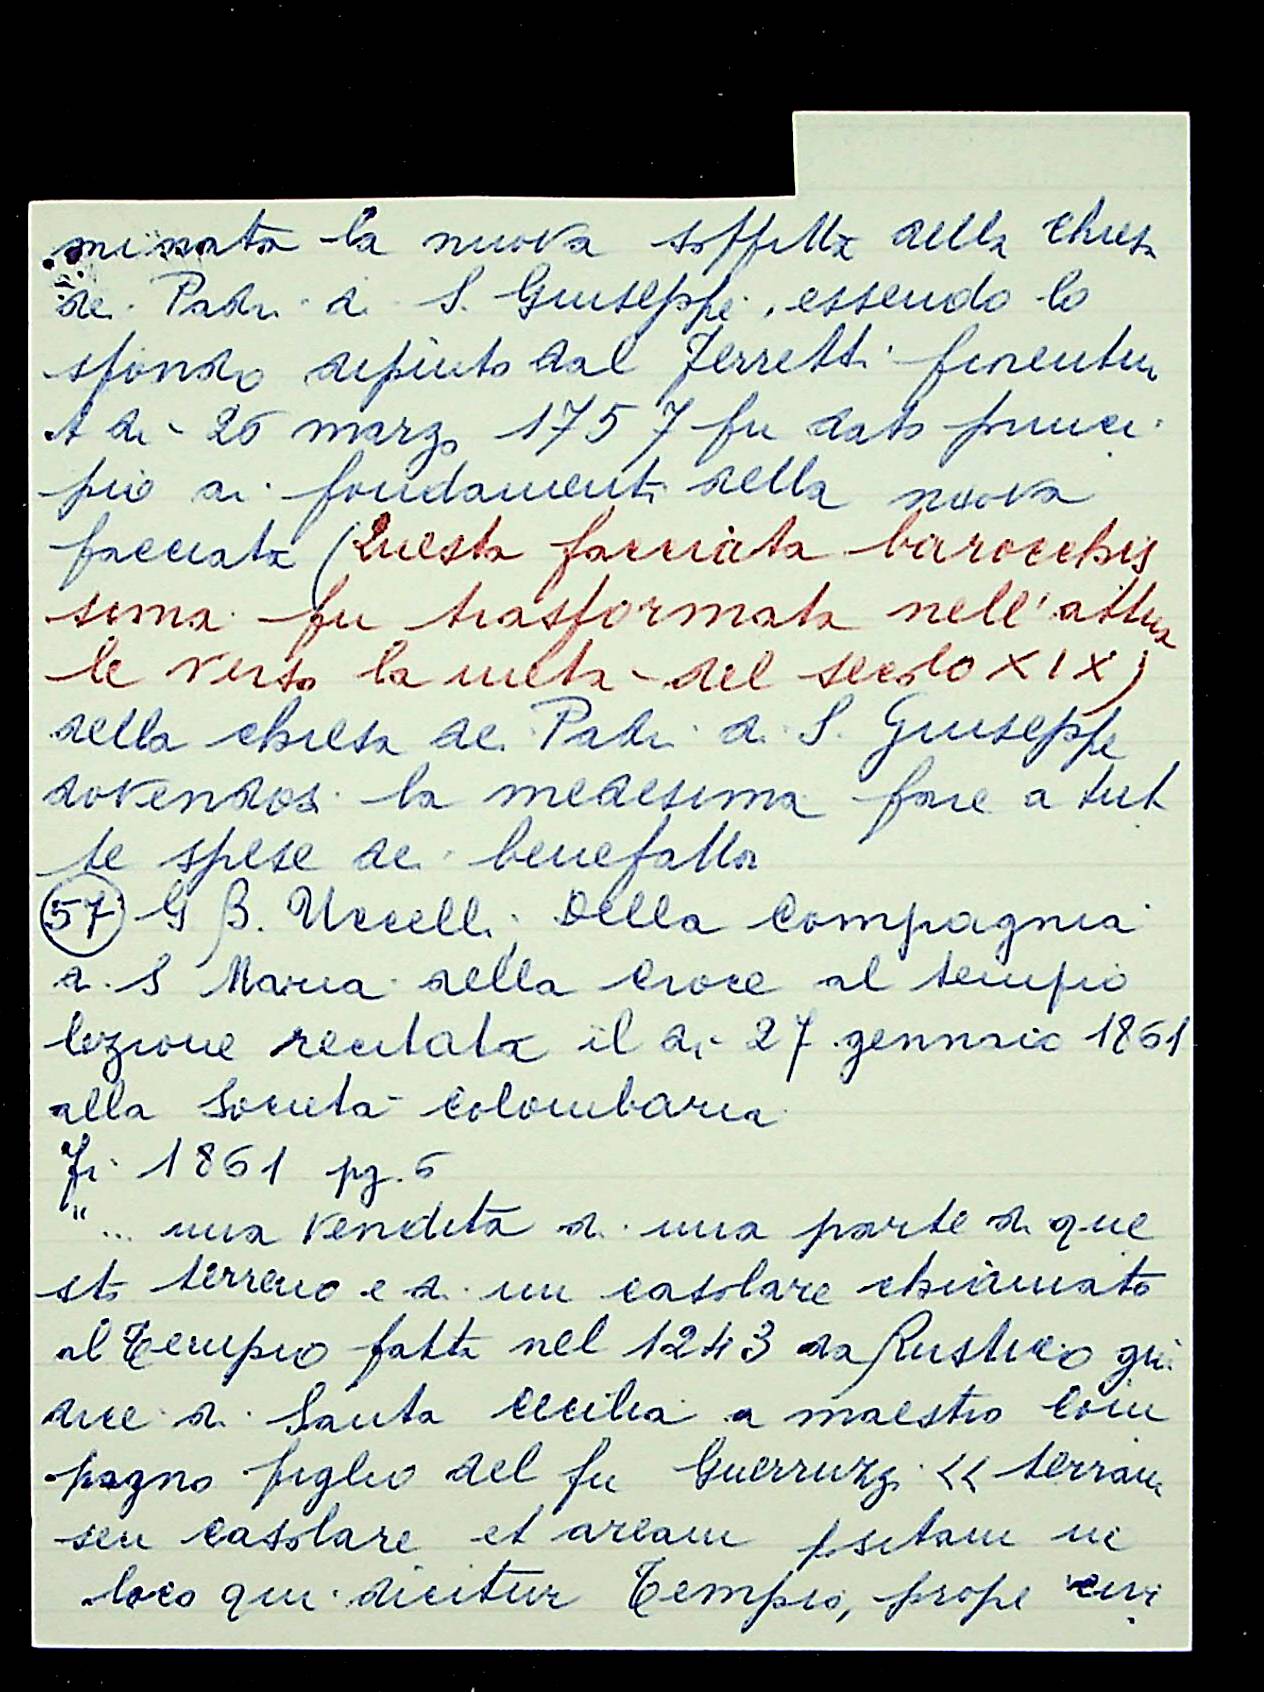 minata la nuova soffitta della chiesa
dei Padri di S. Giuseppe, essendo lo
sfondo dipinto dal Ferretti fiorentin
A di 26 marzo 1757 fu dato princi
pio ai fondamenti della nuova
facciata (Questa facciata barocchis
sima fu trasformata nell'attua
le verso la metà del secolo XIX)
della chiesa dei Padri di S. Giuseppe
dovendosi la medesima fare a tut
te spese dei benefattori
(57) G B. Uccelli, Della Compagnia
di S Maria della Croce al tempio
lezione recitata il dì 27 gennaio 1861
alla Società Colombaria
Fi 1861 pg. 6
"... una vendita di una parte di que
sto terreno e di un casolare chiamato
al Tempio fatta nel 1243 da Rustico giu
dice di Santa Cecilia a maestro Com
pagno figlio del fu Guerruzzi << terram
seu casolare et aream positam in
loco qui dicitur Tempio, prope